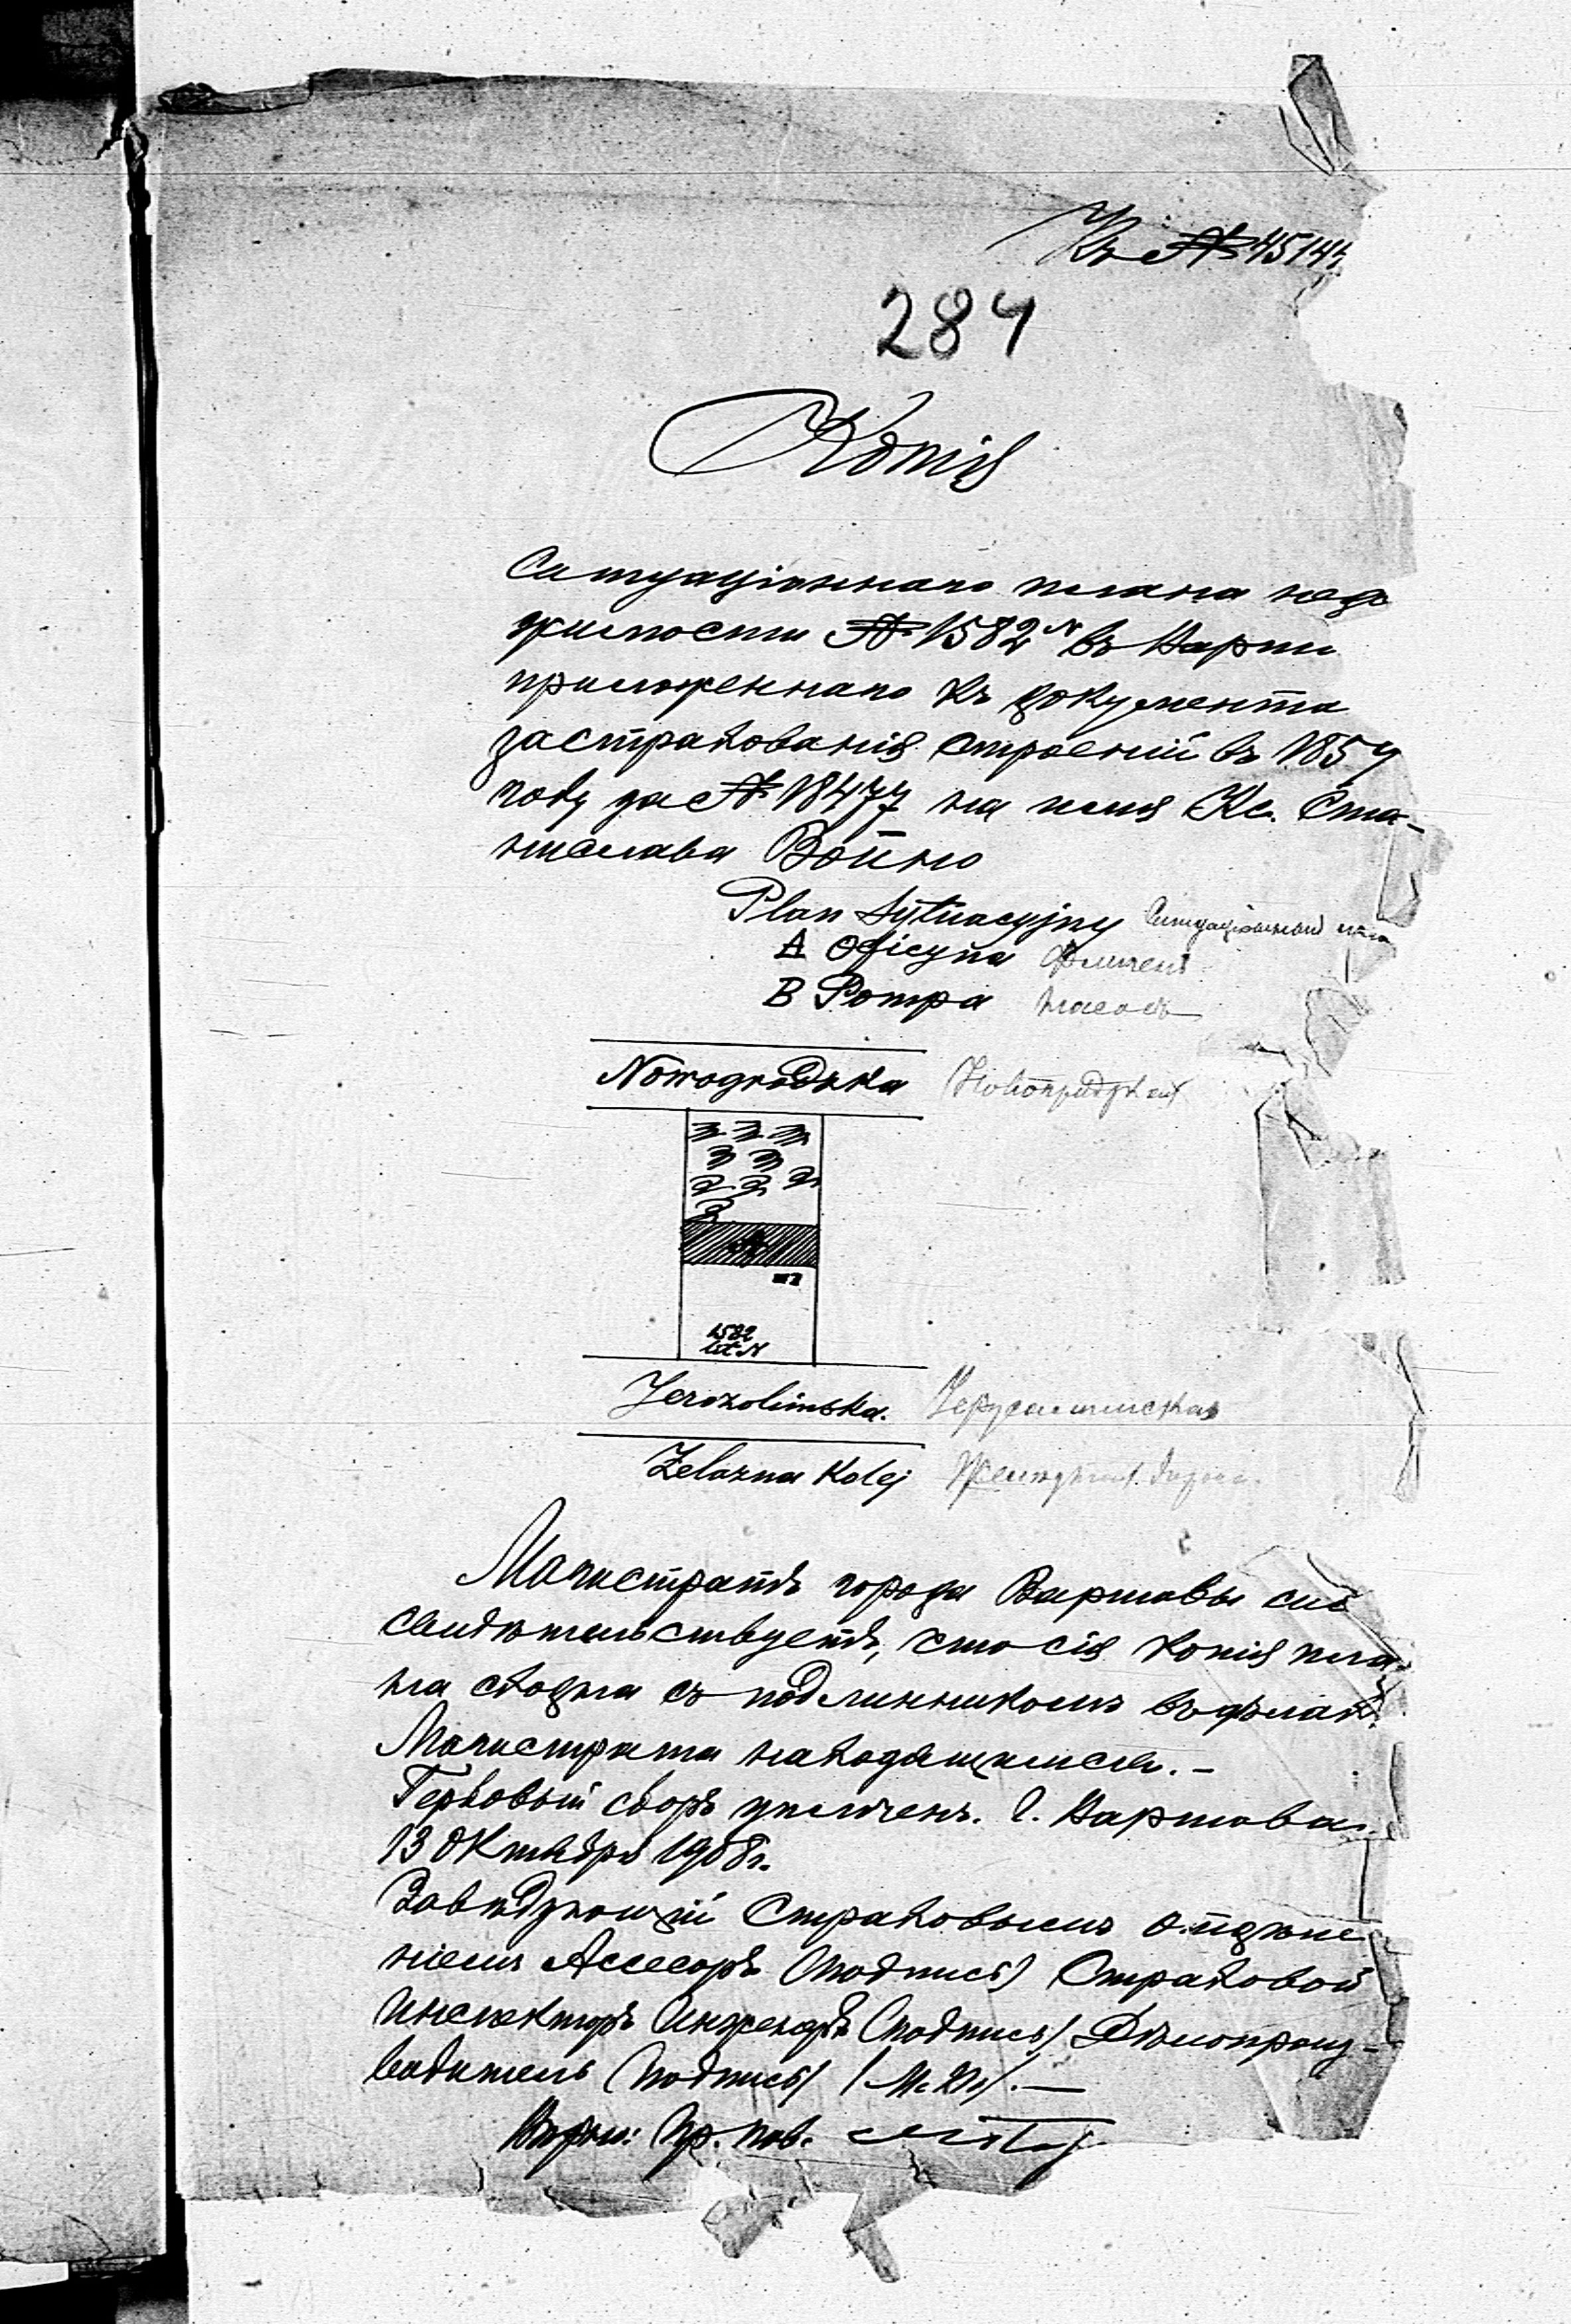 Къ № 45143
284
Копія
Ситуаціоннаго плана недв
жимости № 1582 N въ Варш
приложеннаго къ документа
застрахованія строеній въ 1859
году за № 18477 на имя Кс. Ста-
нислава Войно
Plan Sytuacyjny Ситуаціонный план
A Oficyna Флигель
B Pompa Насосъ
Nowogrodzka Новогродзкая
A
1582
lit. N
Jerozolimska. Іерусалимская
Żelazna Kolej Желѣзная дорога
Магистратъ города Варшавы симъ
свидѣтельствуетъ, что сія копія пла-
на сходна съ подлинникомъ въ дѣлахъ
Магистрата находящимся. -
Гербовый сборъ уплаченъ. Г. Варшава
13 Октября 1908 г.
Завѣдующій Страховымъ отдѣле
ніемъ Асессоръ (подпись) Страховой
Инспекторъ Инженеръ (подпись) Дѣлопроиз-
водитель (подпись) (М. П.). —
Вѣрно: Пр. пов.